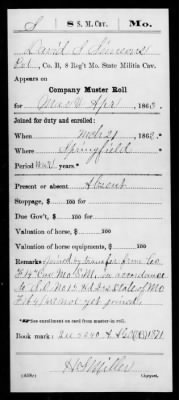 S 8 S. M. Cav. Mo.
David S. Simons
Pvt., Co. B, 8 Reg't Mo. State Militia Cav.
Appears on
Company Muster Roll
for Mar & Apr, 1863.
Joined for duty and enrolled:
When Mch 21, 1862.
Where Springfield
Period War years.*
Present or absent Absent
Stoppage, $ 100 for
Due Gov't, $ 100 for
Valuation of horse, $ 100
Valuation of horse equipments, $ 100
Remarks: Joined by transfer from Co.
F 14" Cav Mo S.M. in accordance
to S.O. No 15 Hd Qrs State of Mo
not yet joined.
*See enrollment on card from muster-in roll.
Book mark:
H S Miller
(358c) Copyist.